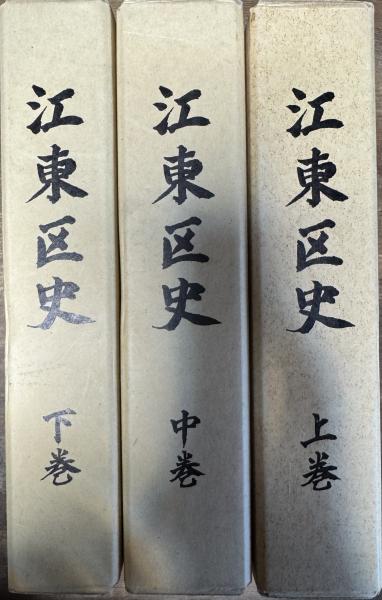 江東区史
上巻
江東区史
中巻
江東区史
下巻